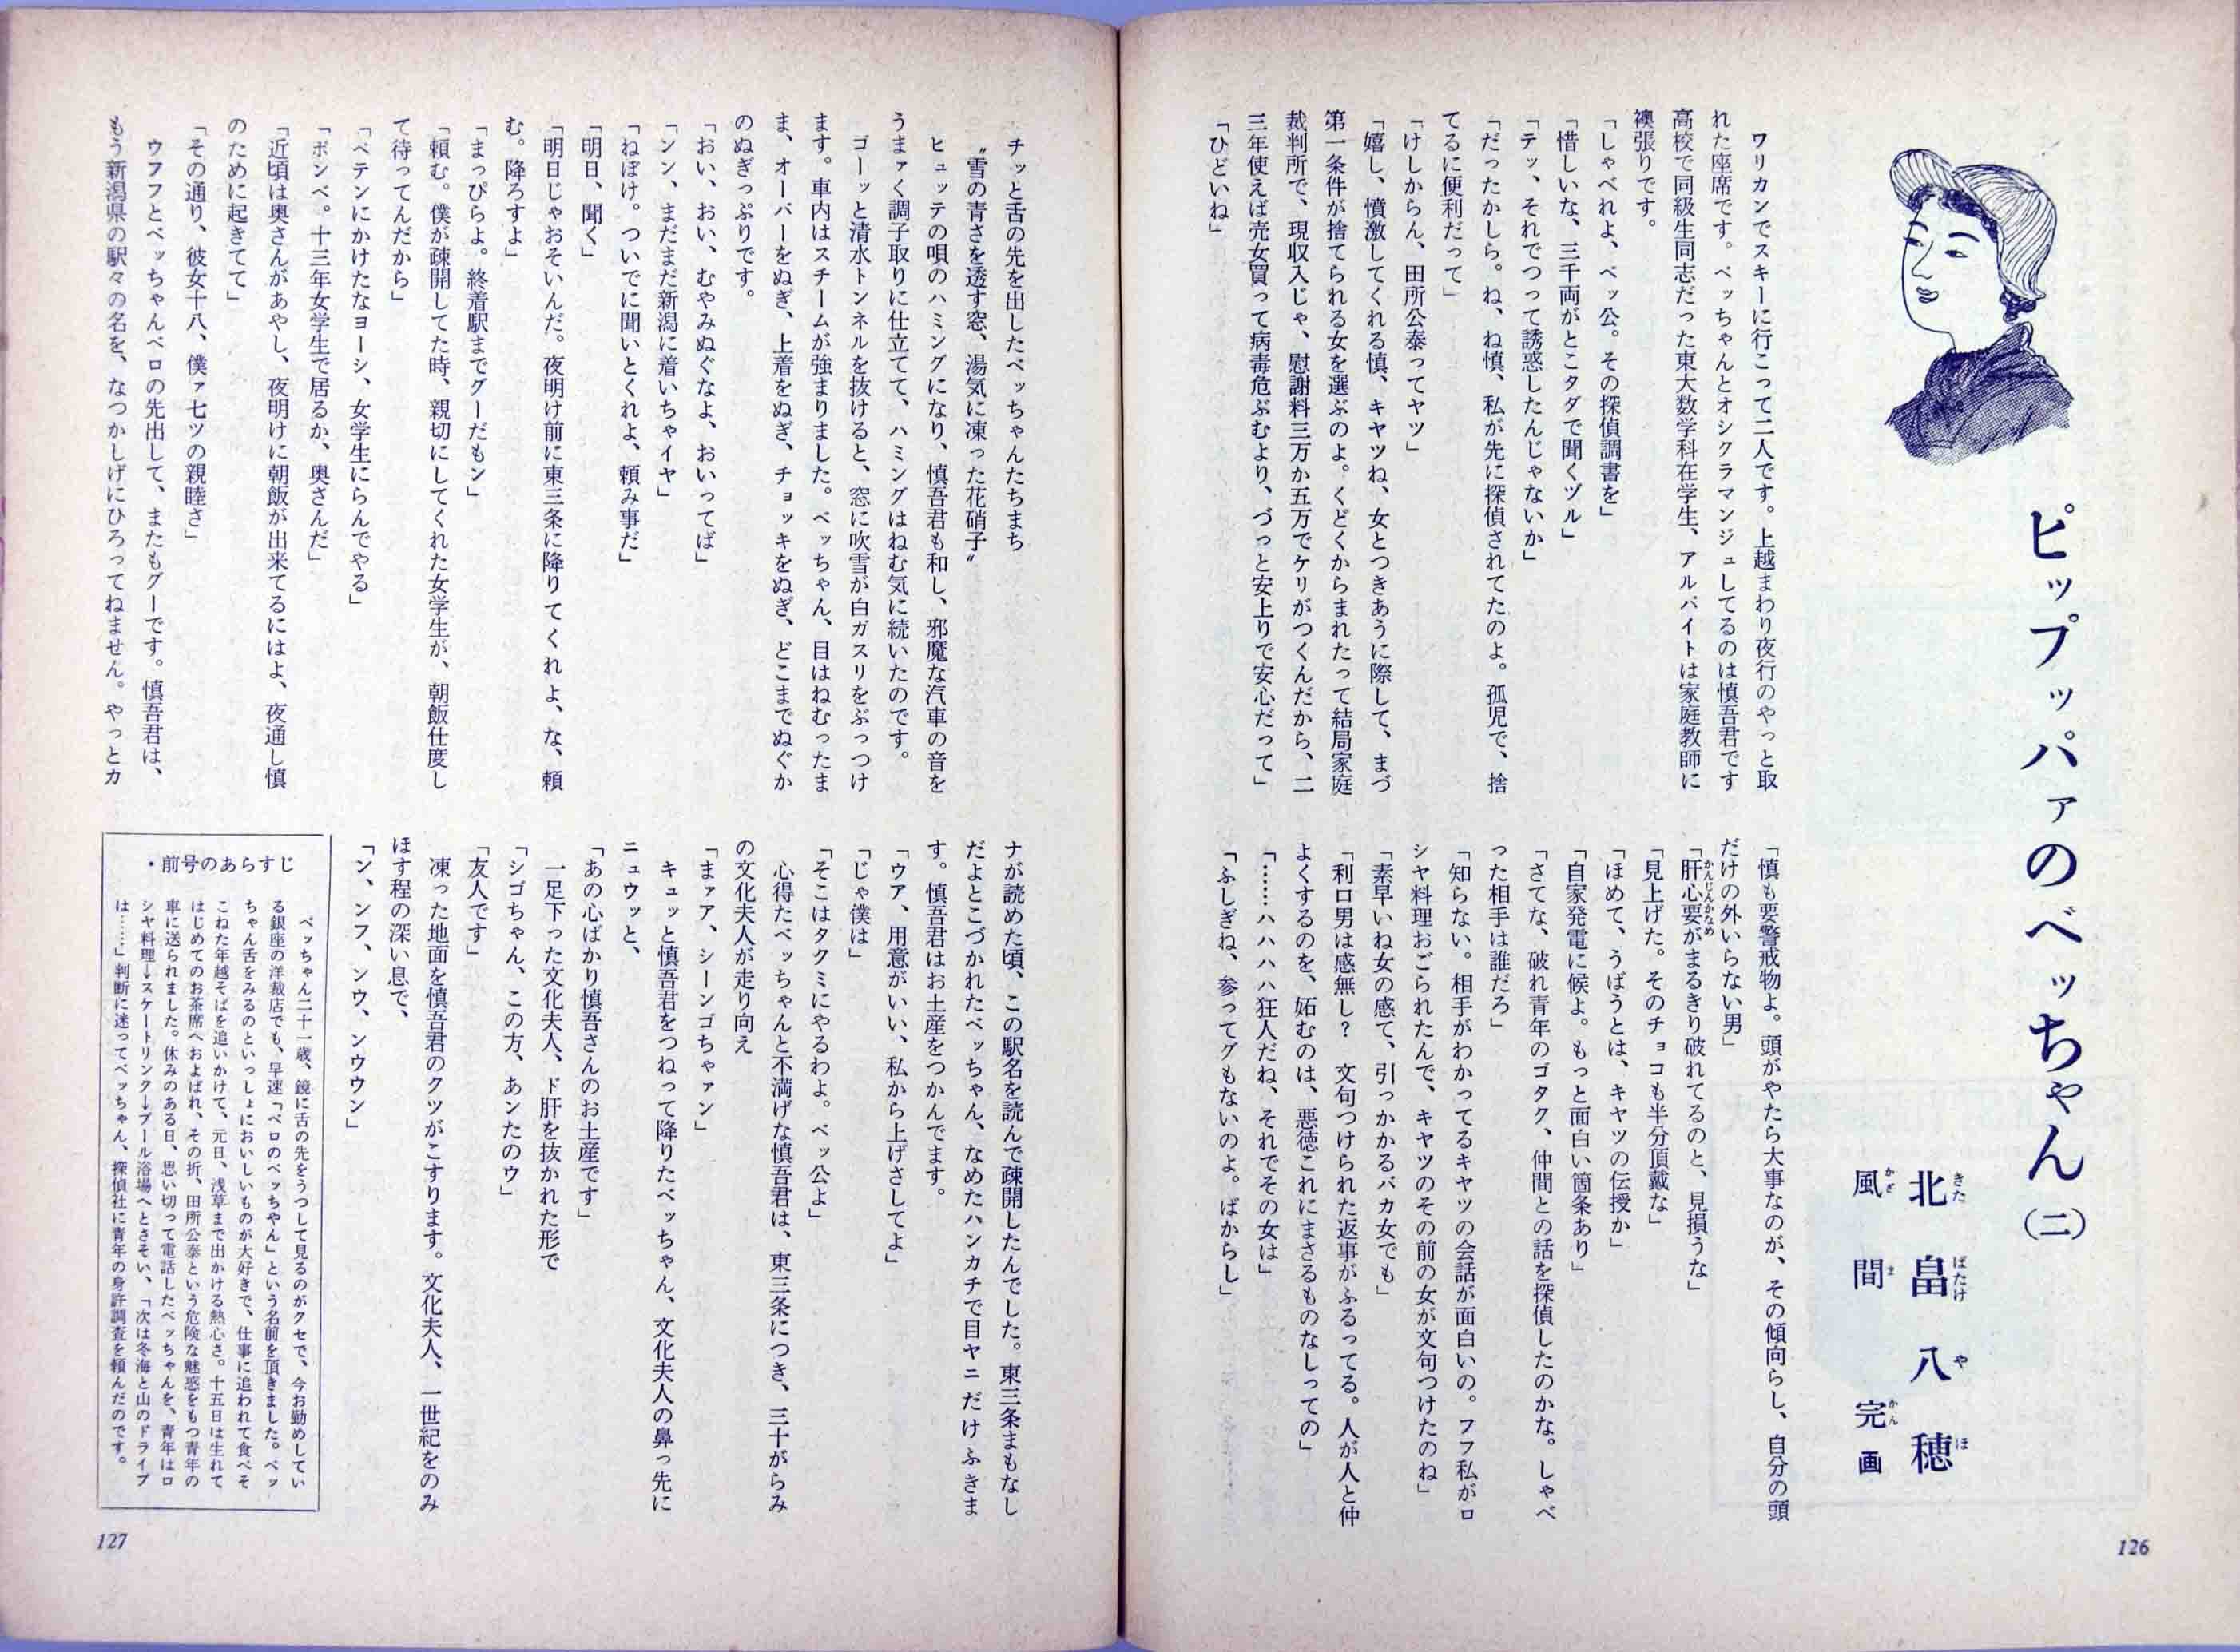 ピップッパァのベッちゃん(二)
北畠八穂
きたばたけやほ
風間完画
かざまかん
ワリカンでスキーに行こって二人です。上越まわり夜行のやっと取
れた座席です。ベッちゃんとオシクラマンジュしてるのは慎吾君です
高校で同級生同志だった東大数学科在学生、アルバイトは家庭教師に
襖張りです。
「しゃべれよ、ベッ公。その探偵調書を」
「惜しいな、三千両がとこタダで聞くヅル」
「テッ、それでつって誘惑したんじゃないか」
「だったかしら。ね、ね慎、私が先に探偵されてたのよ。孤児で、捨
てるに便利だって」
「けしからん、田所公泰ってヤツ」
「嬉し、憤激してくれる慎、キヤツね、女とつきあうに際して、まづ
第一条件が捨てられる女を選ぶのよ。くどくからまれたって結局家庭
裁判所で、現収入じゃ、慰謝料三万か五万でケリがつくんだから、二
三年使えば売女買って病毒危ぶむより、づっと安上りで安心だって」
「ひどいね」
「慎も要警戒物よ。頭がやたら大事なのが、その傾向らし、自分の頭
だけの外いらない男」
「肝心要がまるきり破れてるのと、見損うな」
かんじんかなめ
「見上げた。そのチョコも半分頂戴な」
「ほめて、うばうとは、キヤツの伝授か」
「自家発電に候よ。もっと面白い箇条あり」
「さてな、破れ青年のゴタク、仲間との話を探偵したのかな。しゃべ
った相手は誰だろ」
「知らない。相手がわかってるキヤツの会話が面白いの。フフ私がロ
シヤ料理おごられたんで、キヤツのその前の女が文句つけたのね」
「素早いね女の感て、引っかかるバカ女でも」
「利口男は感無し？　文句つけられた返事がふるってる。人が人と仲
よくするのを、妬むのは、悪徳これにまさるものなしっての」
「……ハハハハ狂人だね、それでその女は」
「ふしぎね、参ってグもないのよ。ばからし」
126
チッと舌の先を出したベッちゃんたちまち
〝雪の青さを透す窓、湯気に凍った花硝子〟
ヒュッテの唄のハミングになり、慎吾君も和し、邪魔な汽車の音を
うまァく調子取りに仕立てて、ハミングはねむ気に続いたのです。
ゴーッと清水トンネルを抜けると、窓に吹雪が白ガスリをぶっつけ
ます。車内はスチームが強まりました。ベッちゃん、目はねむったま
ま、オーバーをぬぎ、上着をぬぎ、チョッキをぬぎ、どこまでぬぐか
のぬぎっぷりです。
「おい、おい、むやみぬぐなよ、おいってば」
「ンン、まだまだ新潟に着いちゃイヤ」
「ねぼけ。ついでに聞いとくれよ、頼み事だ」
「明日、聞く」
「明日じゃおそいんだ。夜明け前に東三条に降りてくれよ、な、頼
む。降ろすよ」
「まっぴらよ。終着駅までグーだもン」
「頼む。僕が疎開してた時、親切にしてくれた女学生が、朝飯仕度し
て待ってんだから」
「ペテンにかけたなヨーシ、女学生にらんでやる」
「ボンベ。十三年女学生で居るか、奥さんだ」
「近頃は奥さんがあやし、夜明けに朝飯が出来てるにはよ、夜通し慎
のために起きてて」
「その通り、彼女十八、僕ァ七ツの親睦さ」
ウフフとベッちゃんベロの先出して、またもグーです。慎吾君は、
もう新潟県の駅々の名を、なつかしげにひろってねません。やっとカ
ナが読めた頃、この駅名を読んで疎開したんでした。東三条まもなし
だよとこづかれたベッちゃん、なめたハンカチで目ヤニだけふきま
す。慎吾君はお土産をつかんでます。
「ウア、用意がいい、私から上げさしてよ」
「じゃ僕は」
「そこはタクミにやるわよ。ベッ公よ」
心得たベッちゃんと不満げな慎吾君は、東三条につき、三十がらみ
の文化夫人が走り向え
「まァア、シーンゴちゃァン」
キュッと慎吾君をつねって降りたベッちゃん、文化夫人の鼻っ先に
ニュウッと、
「あの心ばかり慎吾さんのお土産です」
一足下った文化夫人、ド肝を抜かれた形で
「シゴちゃん、この方、あンたのウ」
「友人です」
凍った地面を慎吾君のクツがこすります。文化夫人、一世紀をのみ
ほす程の深い息で、
「ン、ンフ、ンウ、ンウウン」
・前号のあらすじ
ベッちゃん二十一歳、鏡に舌の先をうつして見るのがクセで、今お勤めしてい
る銀座の洋裁店でも、早速「ベロのベッちゃん」という名前を頂きました。ベッ
ちゃん舌をみるのといっしょにおいしいものが大好きで、仕事に追われて食べそ
こねた年越そばを追いかけて、元日、浅草まで出かける熱心さ。十五日は生れて
はじめてのお茶席へおよばれ、その折、田所公泰という危険な魅惑をもつ青年の
車に送られました。休みのある日、思い切って電話したベッちゃんを、青年はロ
シヤ料理→スケートリンク→プール浴場へとさそい、「次は冬海と山のドライブ
は……」判断に迷ってベッちゃん、探偵社に青年の身許調査を頼んだのです。
127